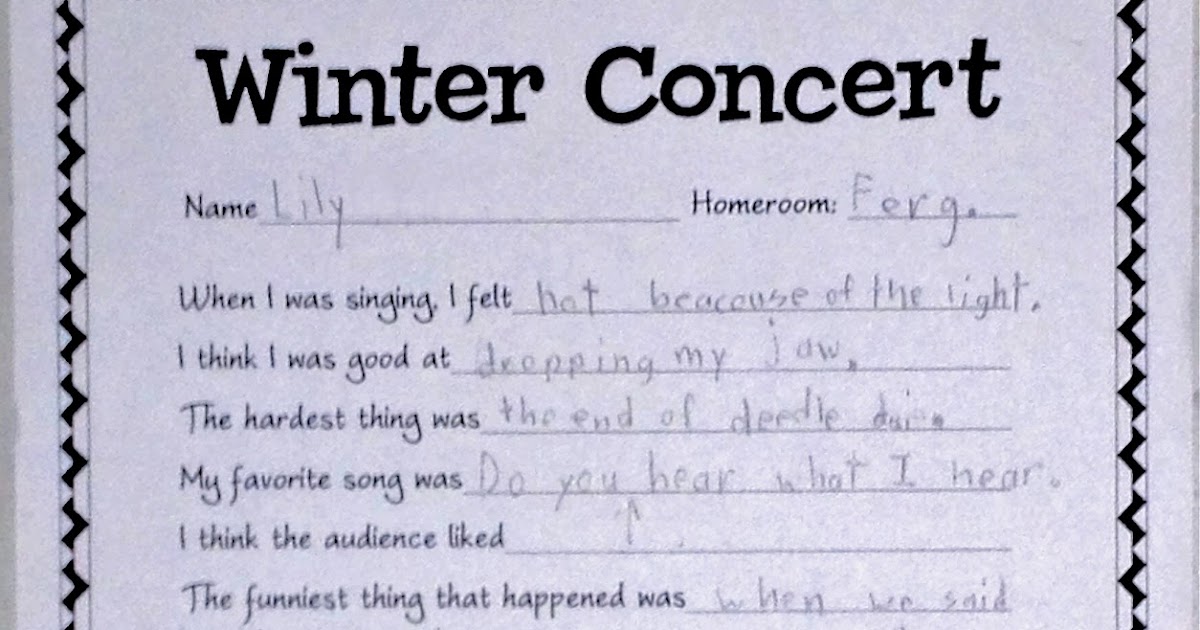 Winter Concert
Name Lily Homeroom: Ferg.
When I was singing, I felt hot beacause of the light.
I think I was good at dropping my jaw.
The hardest thing was the end of deedle
My favorite song was Do you hear what I hear.
I think the audience liked ↑
The funniest thing that happened was when we said